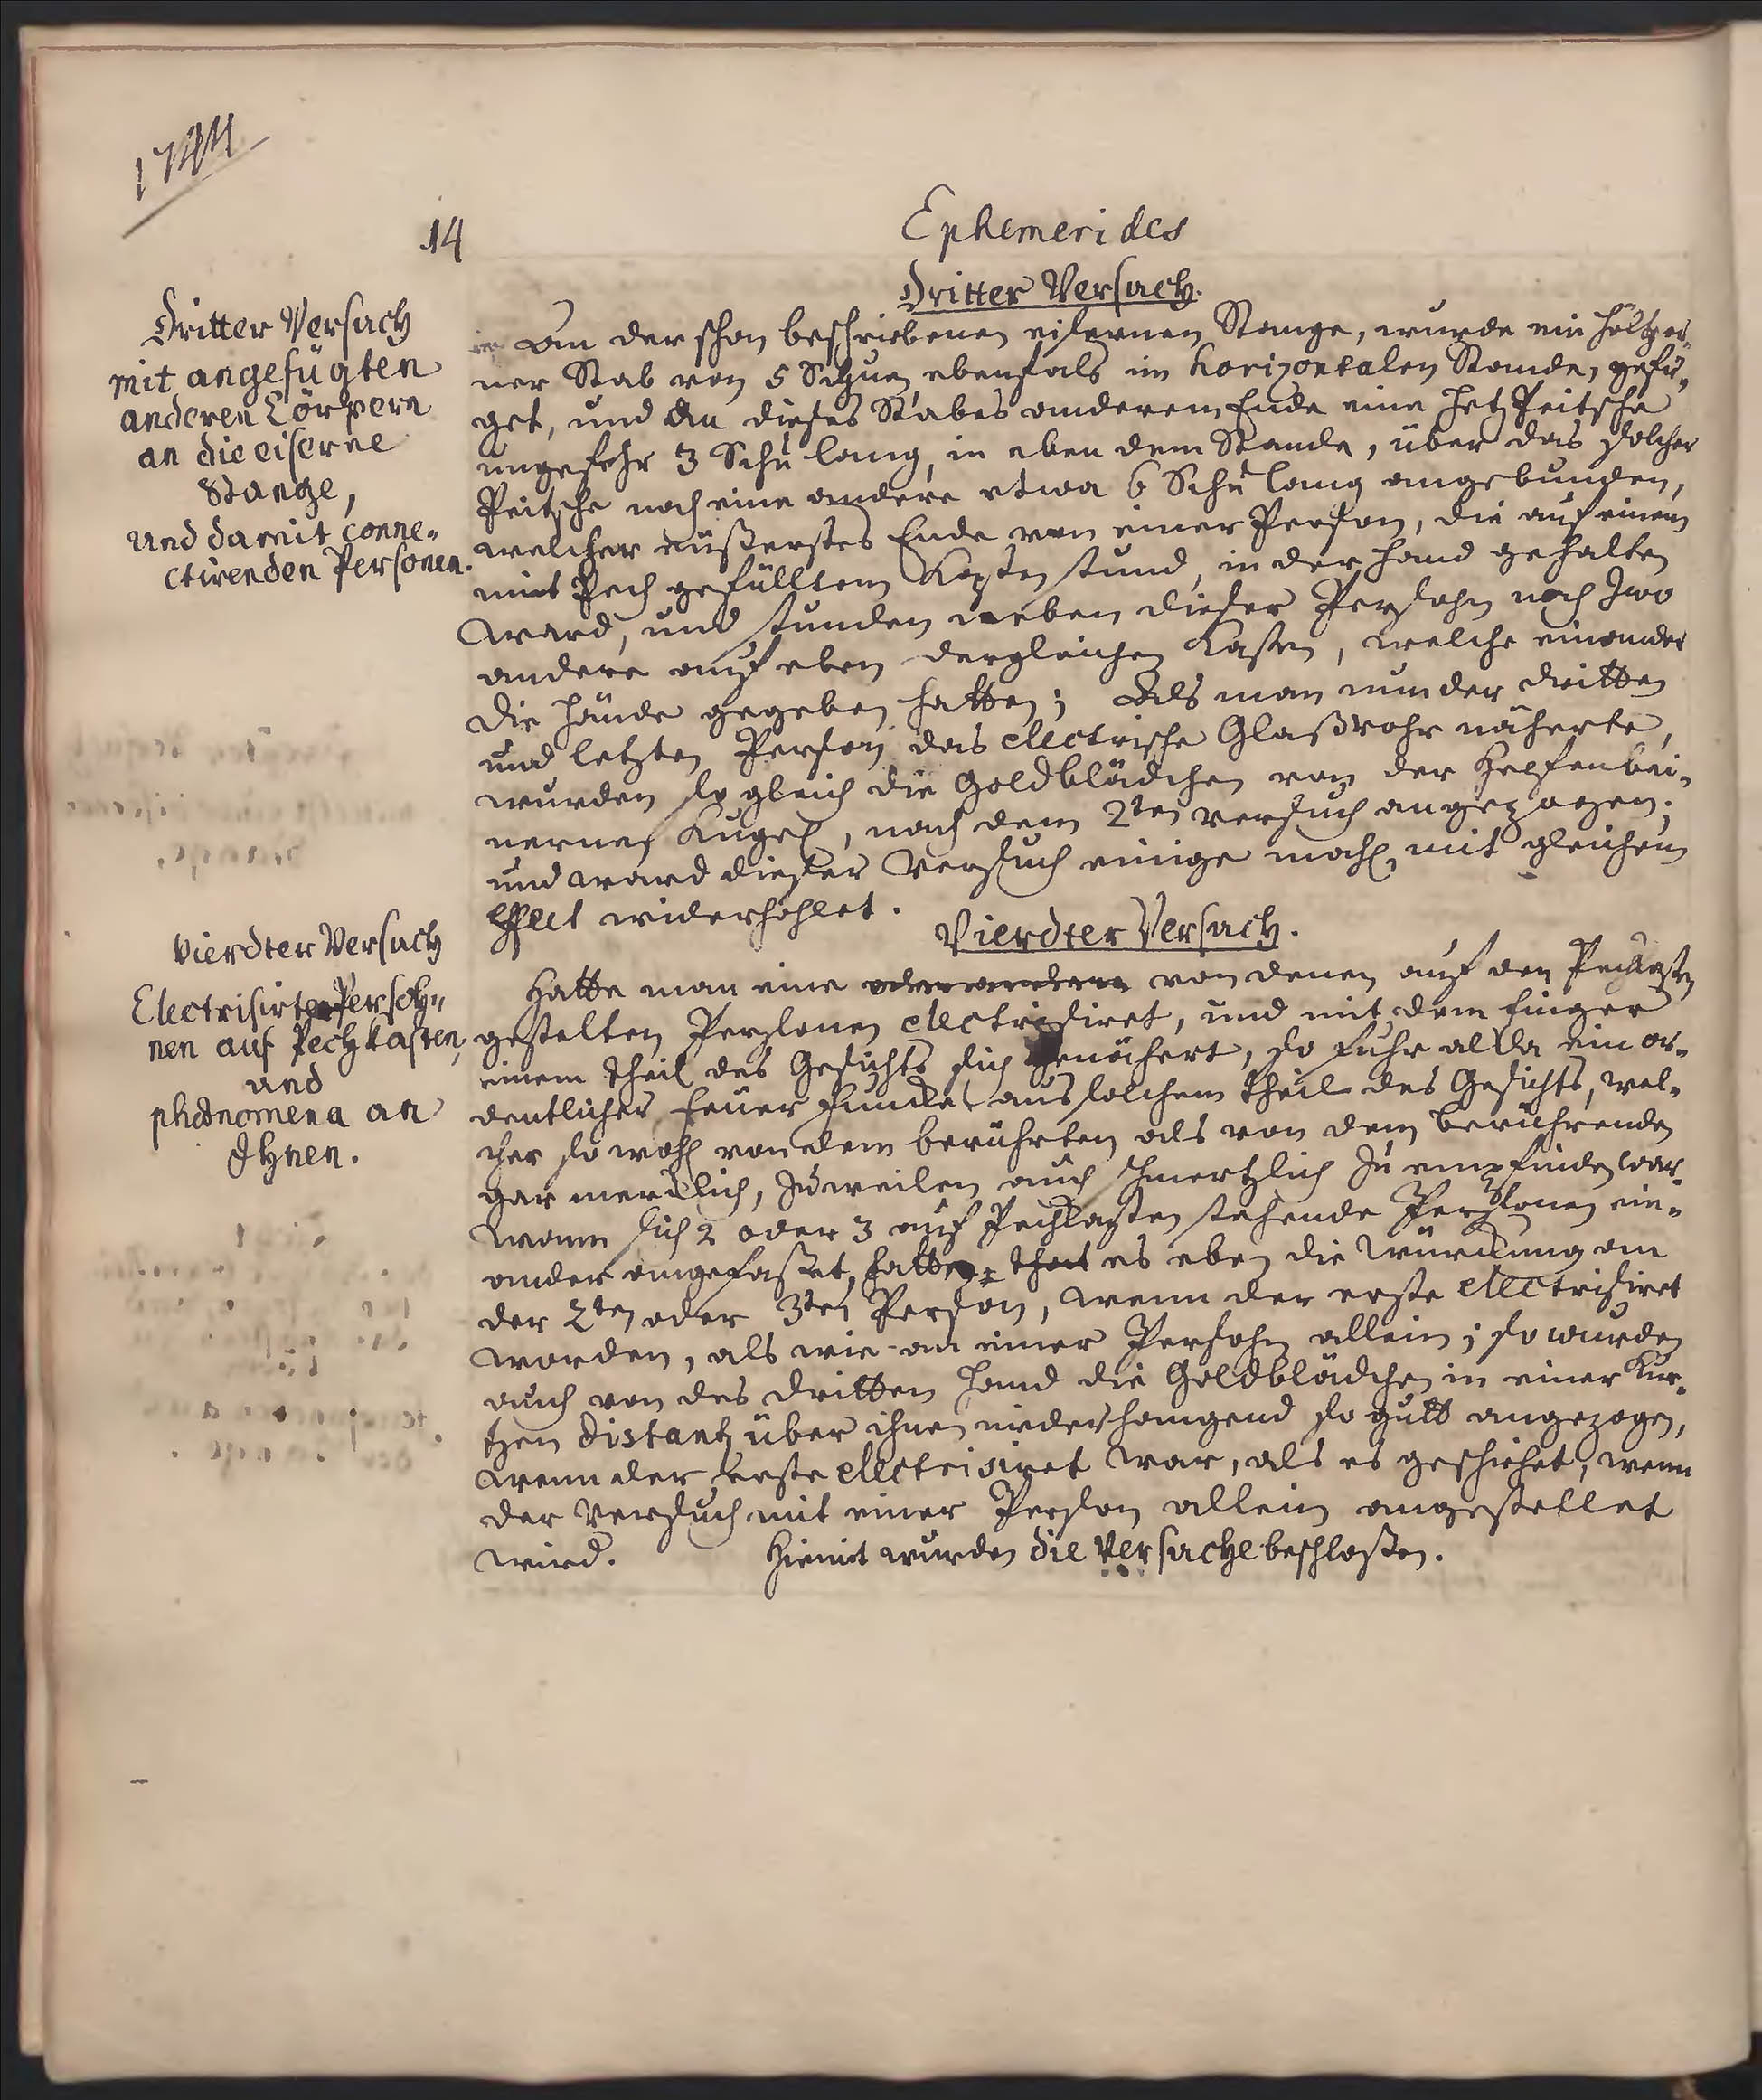 1744
14
Ephemerides
Dritter Versuch
mit angefügten
anderen Cörpern
an die eiserne
Stange,
und damit conne-
ctirenden Personen.
Dritter Versuch.
An der schon beschriebenen eisernen Stange, wurde ein höltzer-
ner Stab von 5 Schuen ebenfals im horizontalen Stande, gefü-
get, und an dieses Stabes anderem Ende eine Hetz Peitsche
ungefehr 3 Schu lang, in eben dem Stande, über das solcher
Peitsche noch eine andere etwa 6 Schu lang angebunden,
welcher äußerstes Ende von einer Person, die auf einem
mit Pech gefülltem Kasten stund, in der Hand gehalten
ward, und stunden neben dieser Persohn noch zwo
andere auf eben dergleichen Kasten, welche einander
die Hände gegeben hatten; Als man nun der dritten
und letzten Person das electrische Glaßrohr näherte,
wurden so gleich die Goldblädchen von der Helfenbei-
nernen Kugel, nach dem 2ten versuch angezogen;
und ward dieser Versuch einige mahl, mit gleichem
Effect widerhohlet.
Vierdter Versuch
Electrisirte Persoh-
nen auf Pechkasten,
und
phænomena an
Ihnen.
Vierdter Versuch.
Hatte man eine oder andere von denen auf den Pechkasten
gestelten Personen electrisiret, und mit dem finger
einem theil des Gesichts sich genähert, so fuhr alda ein or-
dentlicher feuer funcke aus solchem theil des Gesichts, wel-
cher so wohl von dem berührten als von dem berührenden
gar mercklich, zuweilen auch schmertzlich zu empfinden war.
wann sich 2 oder 3 auf Pechkasten stehende Personen ein-
ander angefaßet hatten, that es eben die würckung an
der 2ten oder 3ten Person, wenn der erste electrisiret
worden, als wie an einer Persohn allein; so wurden
auch von des dritten Hand die Goldblädchen in einer kur-
tzen distantz über ihnen niederhangend so gutt angezogen,
wenn der erste electrisiret war, als es geschiehet, wenn
der Versuch mit einer Person allein angestellet
wird. Hiemit wurden die Versuche beschloßen.